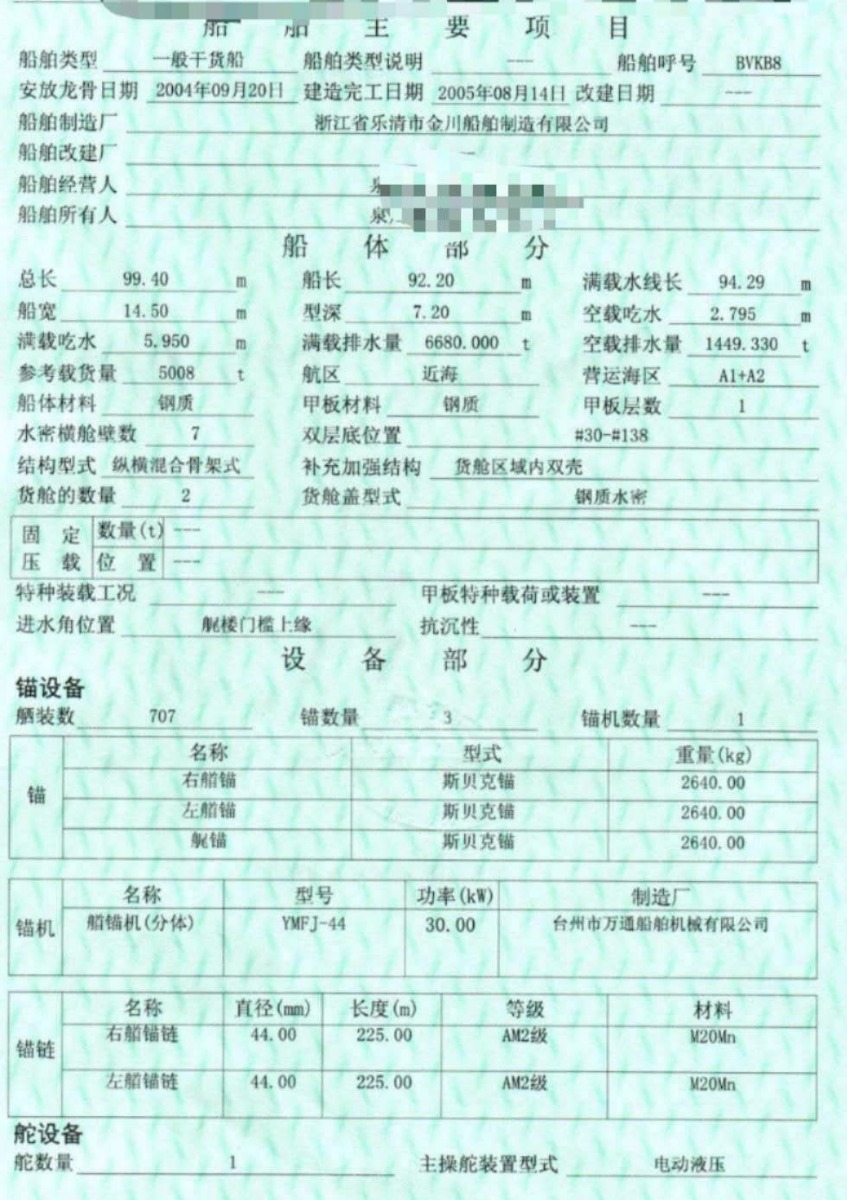 船舶主要项目
船舶类型 一般干货船 船舶类型说明 --- 船舶呼号 BVKB8
安放龙骨日期 2004年09月20日 建造完工日期 2005年08月14日 改建日期 ---
船舶制造厂 浙江省乐清市金川船舶制造有限公司
船舶改建厂
船舶经营人 泉
船舶所有人 泉
船体部分
总长 99.40 m 船长 92.20 m 满载水线长 94.29 m
船宽 14.50 m 型深 7.20 m 空载吃水 2.795 m
满载吃水 5.950 m 满载排水量 6680.000 t 空载排水量 1449.330 t
参考载货量 5008 t 航区 近海 营运海区 A1+A2
船体材料 钢质 甲板材料 钢质 甲板层数 1
水密横舱壁数 7 双层底位置 #30-#138
结构型式 纵横混合骨架式 补充加强结构 货舱区域内双壳
货舱的数量 2 货舱盖型式 钢质水密
固定 数量(t) ---
压载 位置 ---
特种装载工况 --- 甲板特种载荷或装置 ---
进水角位置 艉楼门槛上缘 抗沉性 ---
设备部分
锚设备
舾装数 707 锚数量 3 锚机数量 1
名称 型式 重量(kg)
右艏锚 斯贝克锚 2640.00
锚 左艏锚 斯贝克锚 2640.00
艉锚 斯贝克锚 2640.00
名称 型号 功率(kW) 制造厂
锚机 艏锚机(分体) YMFJ-44 30.00 台州市万通船舶机械有限公司
名称 直径(mm) 长度(m) 等级 材料
锚链 右艏锚链 44.00 225.00 AM2级 M20Mn
左艏锚链 44.00 225.00 AM2级 M20Mn
舵设备
舵数量 1 主操舵装置型式 电动液压